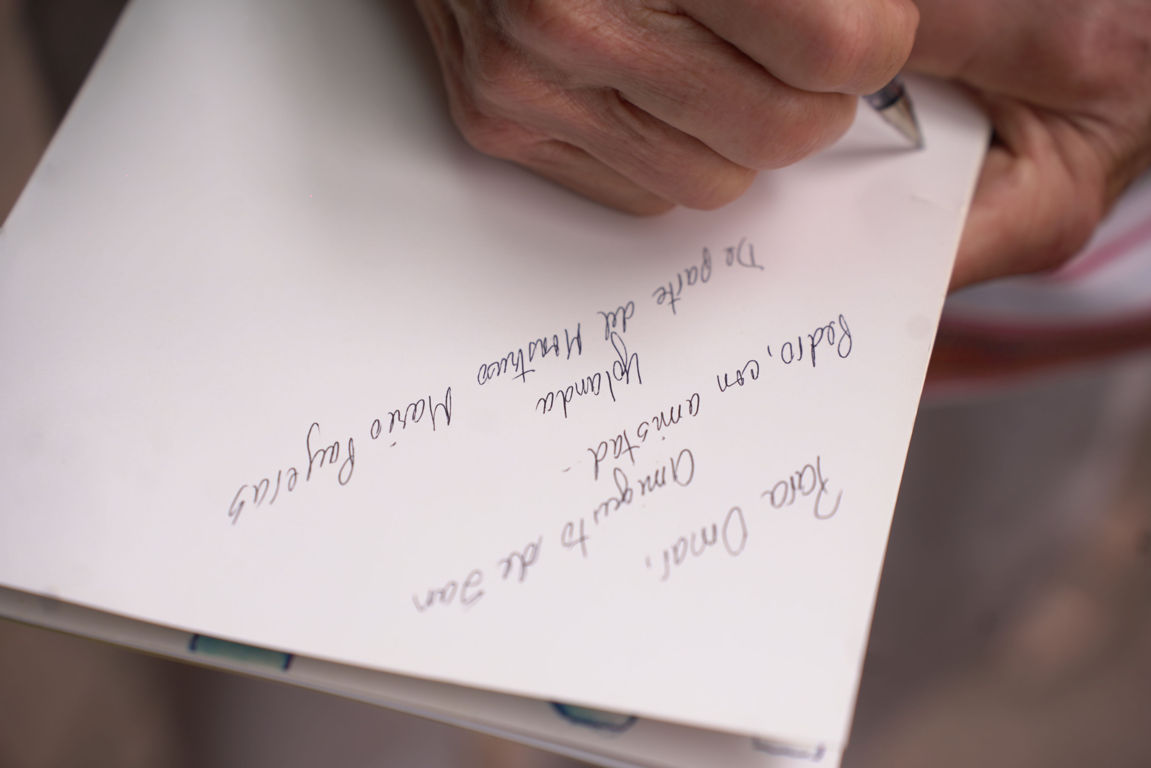 Para Omar,
amiguito de San
Pedro, con amistad.
Yolanda
De parte del Monstruo Mario Payeras